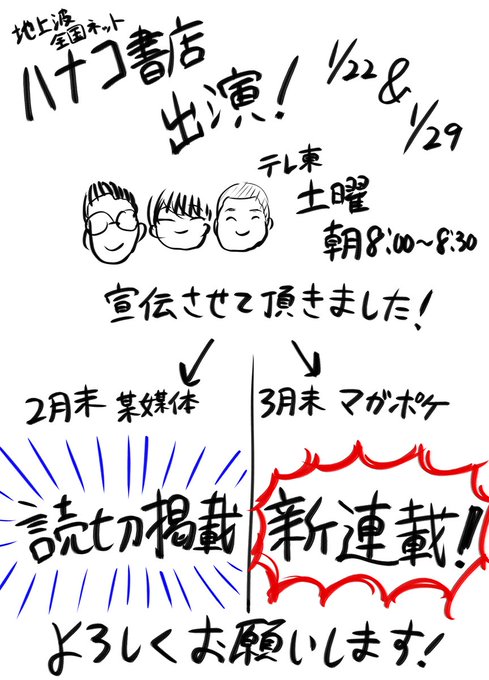 地上波
全国ネット
ハナコ書店
出演!
1/22 & 1/29
テレ東
土曜
朝8:00~8:30
宣伝させて頂きました!
2月末 某媒体
読切掲載
3月末 マガポケ
新連載!!
よろしくお願いします!